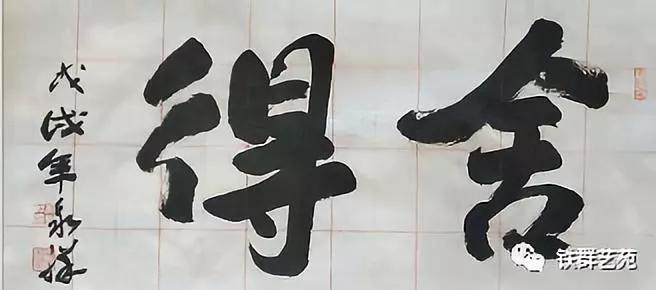 舍得
戊戌年泉祥
铁群艺苑